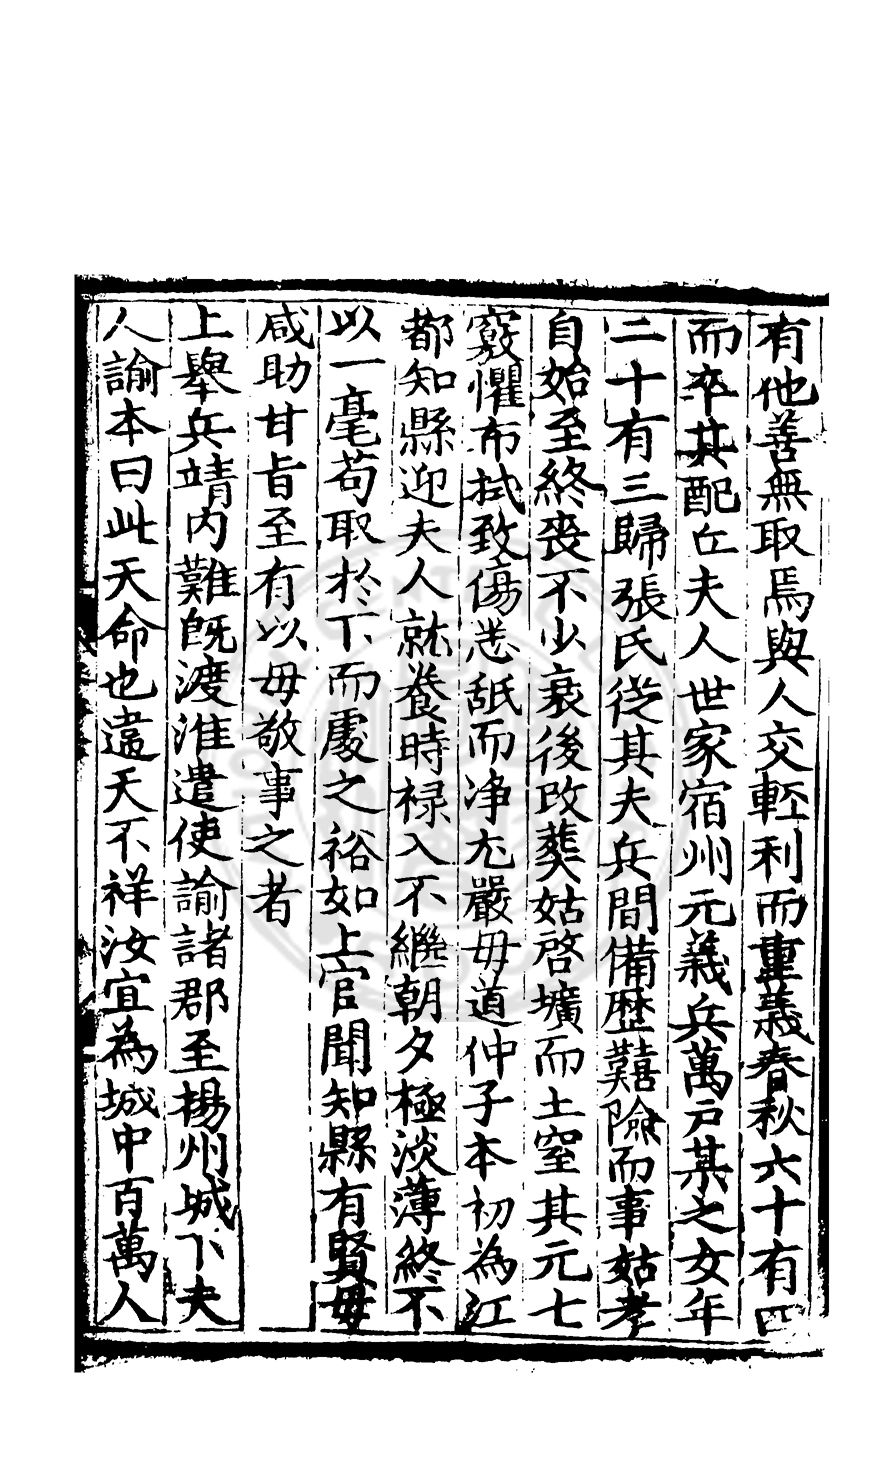 有他善無取焉與人交輕利而重義春秋六十有四
而卒其配丘夫人世家宿州元義兵萬戶某之女年
二十有三歸張氏從其夫兵間備歷囏險而事姑孝
自始至終喪不少衰後改葬姑啓壙而土窒其元七
竅懼布拭致傷恙舐而净尤嚴毋道仲子本初為江
都知縣迎夫人就養時禄入不繼朝夕極淡薄終不
以一毫苟取於下而處之裕如上官聞知縣有賢毋
咸助甘旨至有以毋敬事之者
上舉兵靖内難既渡淮遣使諭諸郡至楊州城下夫
人諭本曰此天命也違天不祥汝宜為城中百萬人